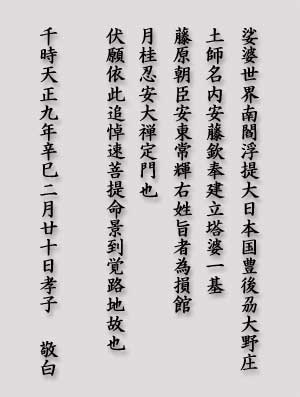 娑婆世界南閻浮提大日本国豊後刕大野庄
土師名内安藤欽奉建立塔婆一基
藤原朝臣安東常輝右姓旨者為損館
月桂忍安大禅定門也
伏願依此追悼速菩提命景到覚路地故也
千時天正九年辛巳二月廿十日孝子 敬白